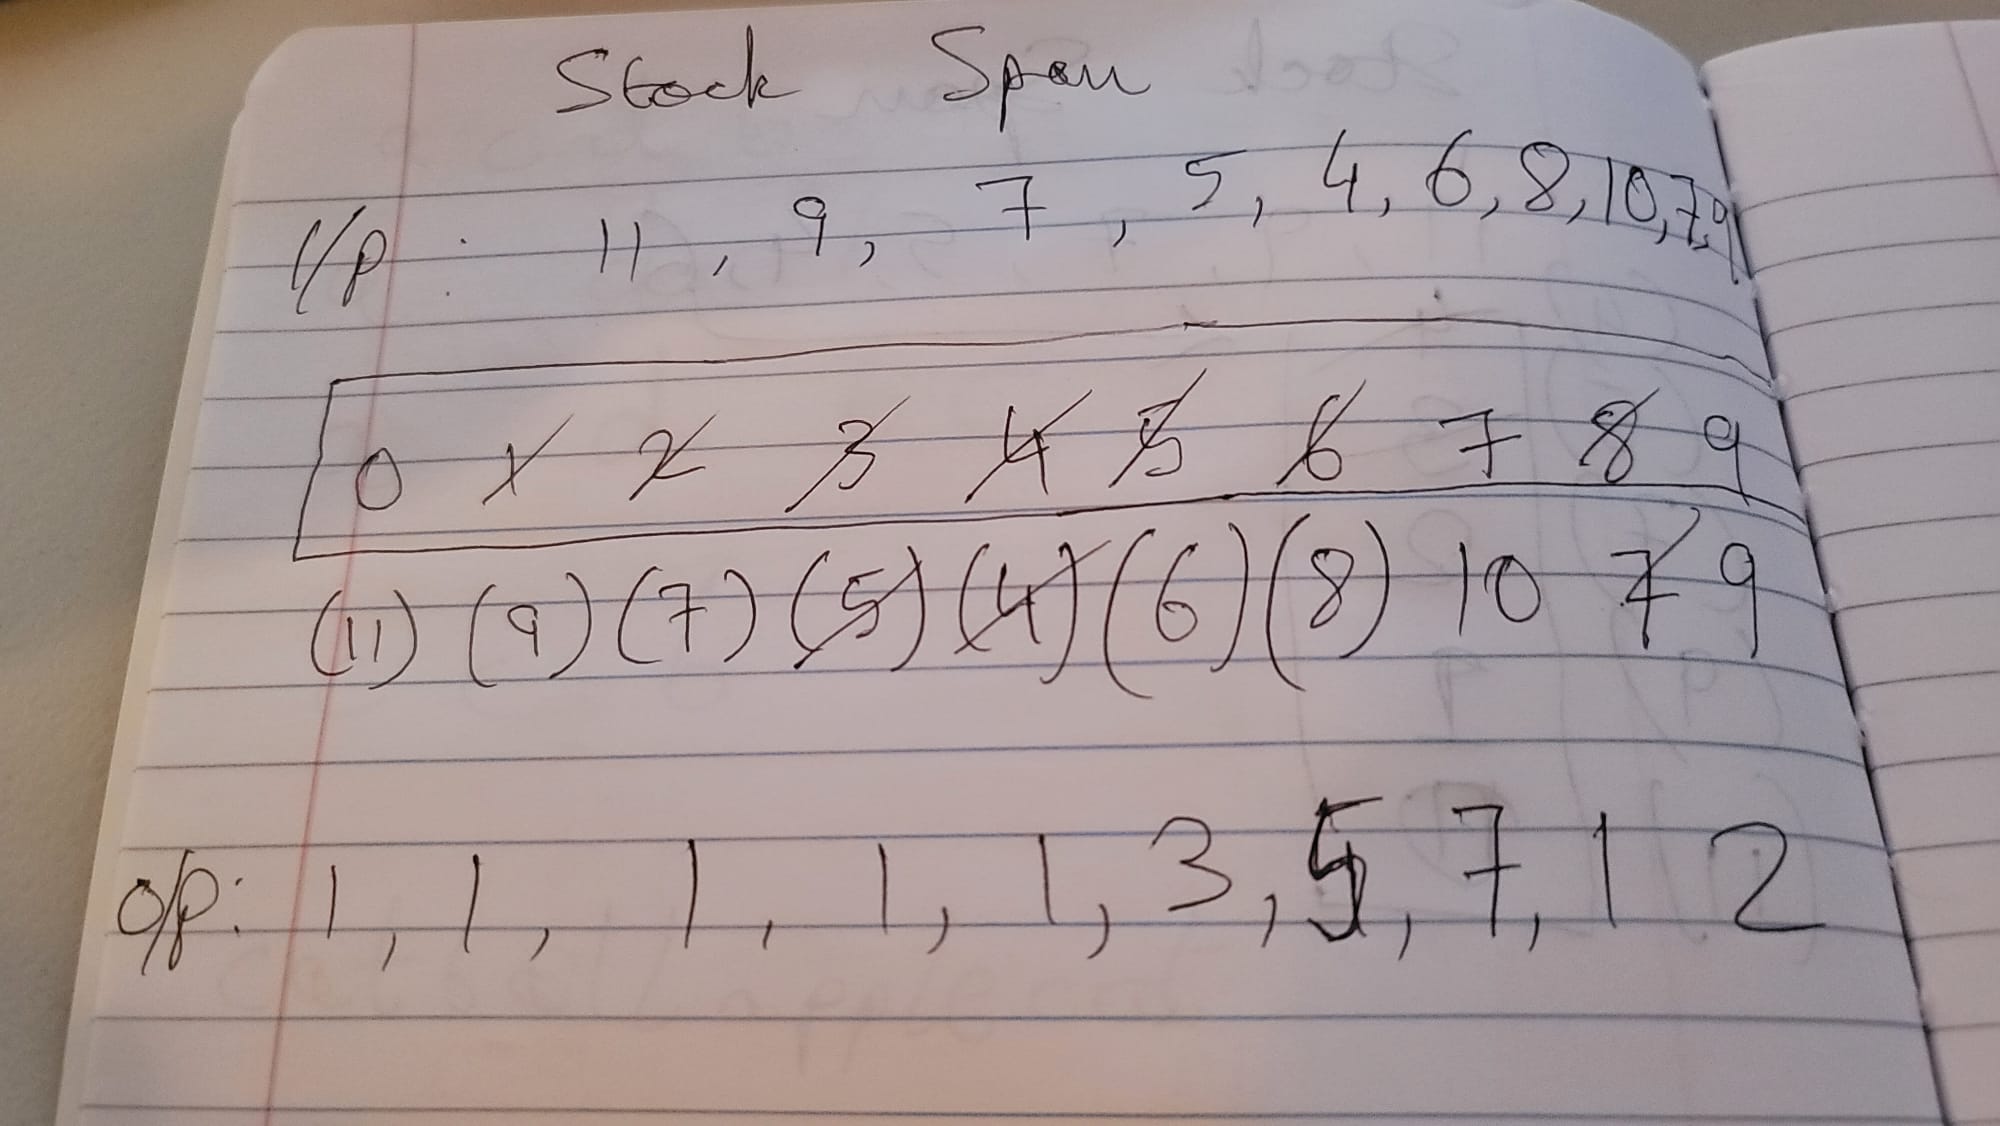 Stock Span
I/p : 11, 9, 7, 5, 4, 6, 8, 10, 7, 9
0 1 2 3 4 5 6 7 8 9
(11) (9) (7) (5) (4) (6) (8) 10 7 9
o/p: 1, 1, 1, 1, 1, 3, 5, 7, 1 2